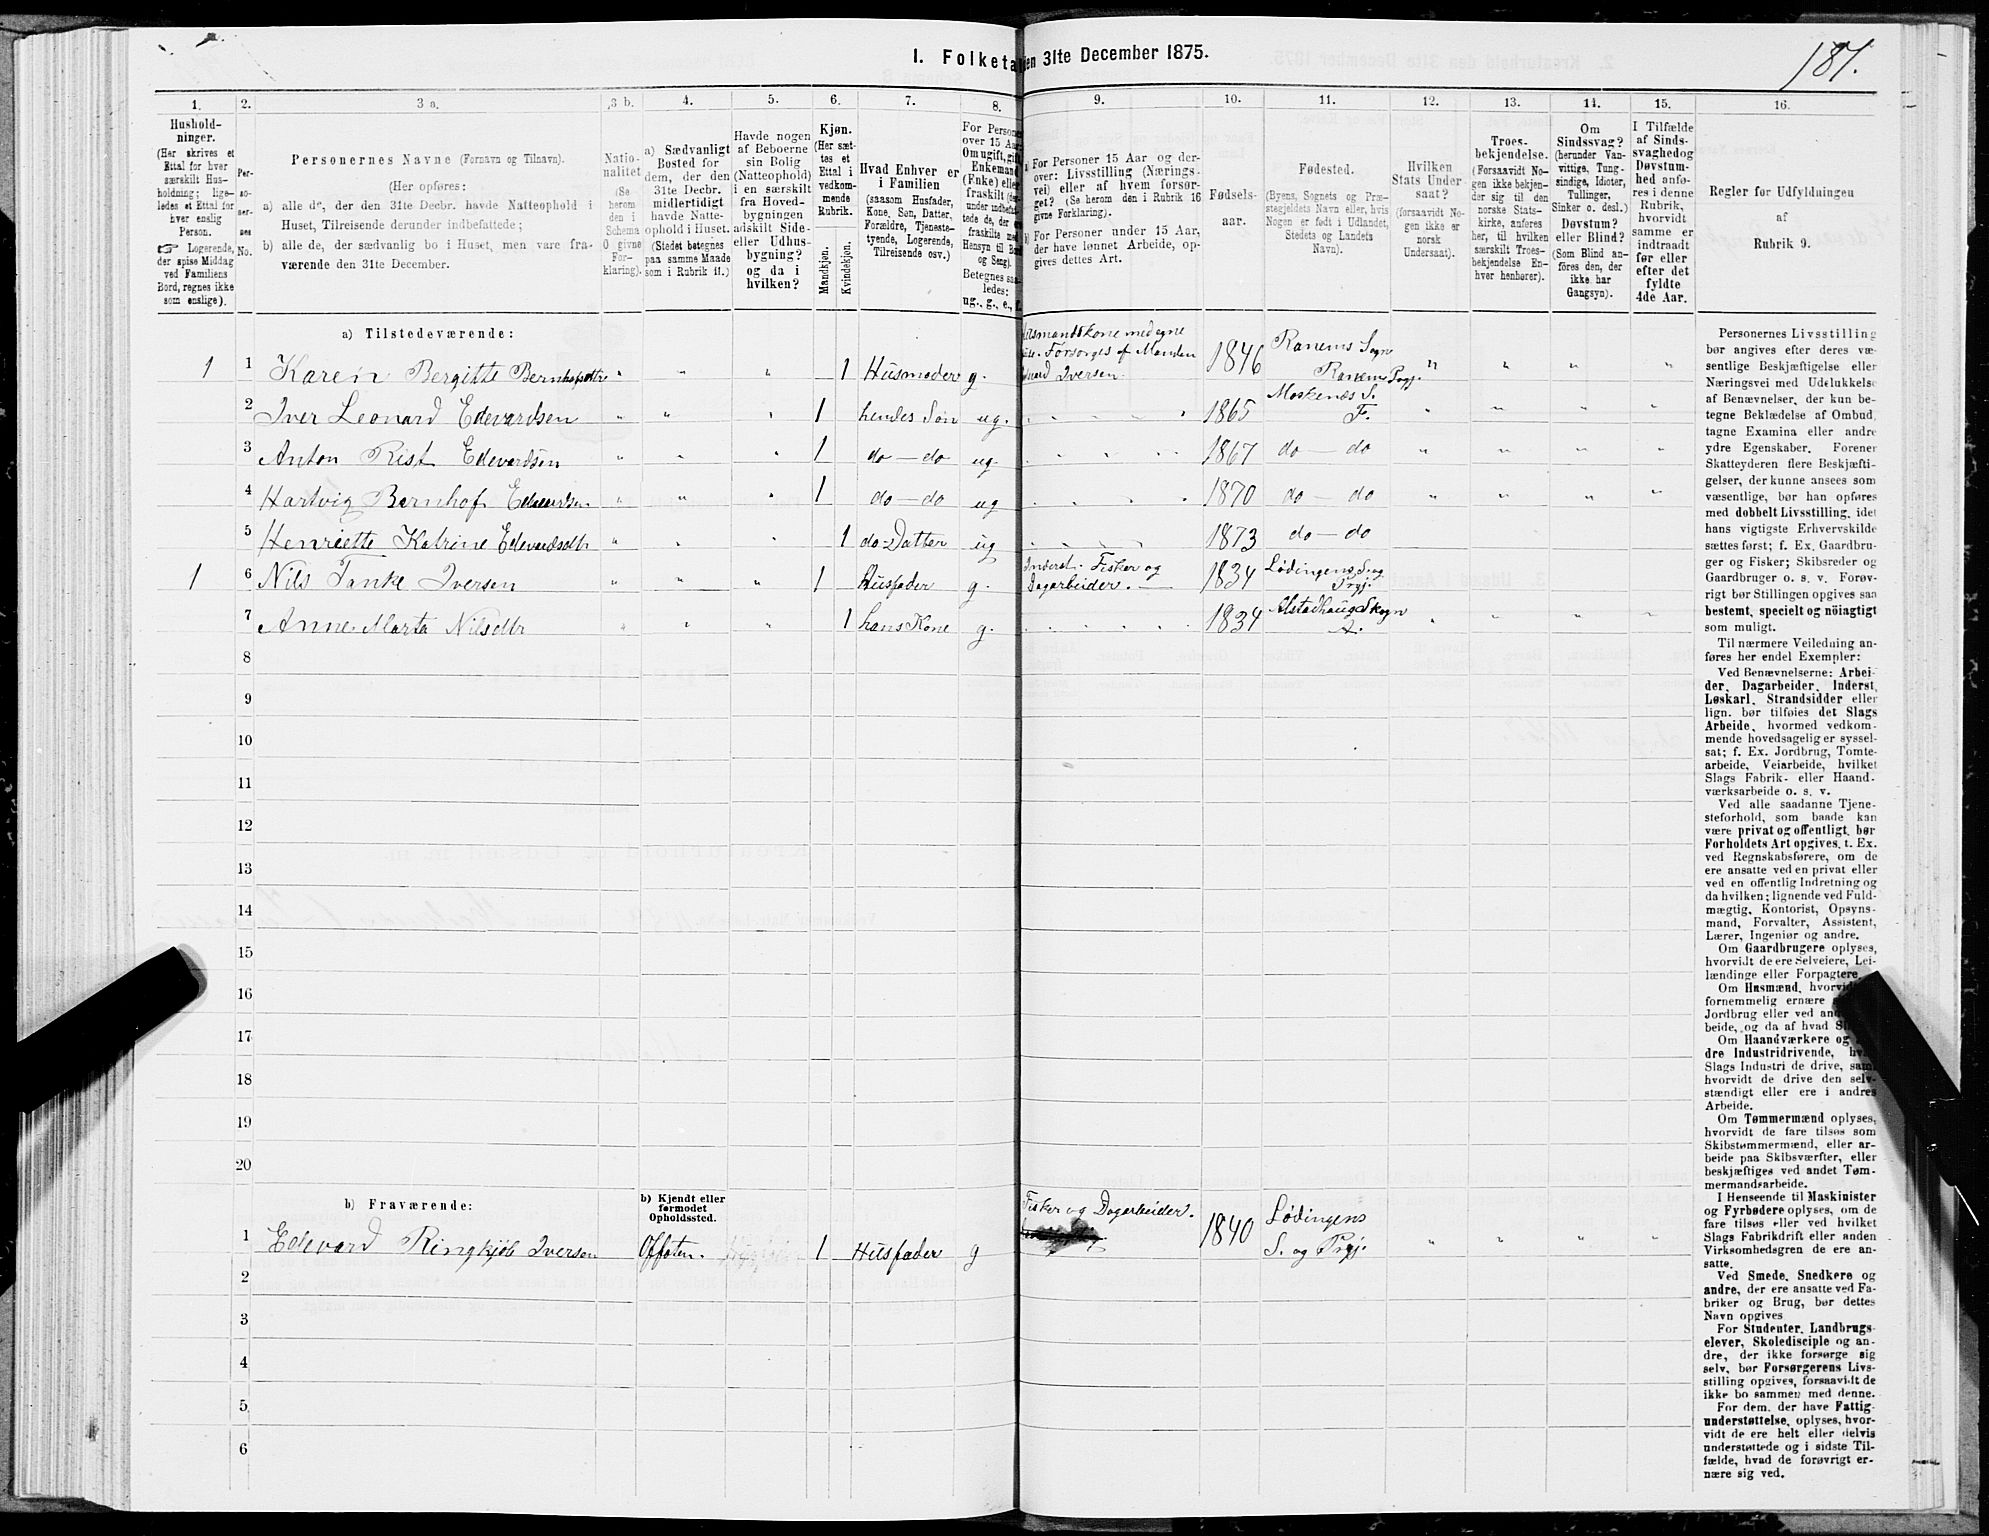 I. Folketa
den 31te December 1875.
181.
1.
2.
3 a.
3 b.
4.
5.
6.
7.
8.
9.
10.
11.
12.
13.
14.
15.
16.
Hushold-
ninger.
(Her skrives et
Ettal for hver
særskilt Hus-
holdning; lige-
ledes et Ettal for
hver enslig
Person.
☞ Logerende,
der spise Middag
ved Familiens
Bord, regnes ikke
som enslige).
Per-
so-
ner-
nes
No.
Personernes Navne (Fornavn og Tilnavn).
(Her opføres:
a) alle de, der den 31te Decbr. havde Natteophold i
Huset, Tilreisende derunder indbefattede;
b) alle de, der sædvanlig bo i Huset, men vare fra-
værende den 31te December.
Natio-
nalitet
(Se
herom
den i
Schema
O givne
For-
klaring).
a) Sædvanligt
Bosted for
dem, der den
31te Decbr.
midlertidigt
havde Natte-
ophold i Huset.
(Stedet betegnes
paa samme Maade
som i Rubrik 11.)
Havde nogen
af Beboerne
sin Bolig
(Natteophold)
i en særskilt
fra Hoved-
bygningen
adskilt Side-
eller Udhus-
bygning?
og da i
hvilken?
Kjøn.
(Her sæt-
tes et
Ettal i
vedkom-
mende
Rubrik.
Mandkjøn.
Kvindekjøn.
Hvad Enhver er
i Familien
(saasom Husfader,
Kone, Søn, Datter,
Forældre, Tjeneste-
tyende, Logerende,
Tilreisende osv.)
For Personer
over 15 Aar:
Om ugift, gift,
Enkemand
(Enke) eller
fraskilt (der-
under indbefat-
tede de, der ere
fraskilte med
Hensyn til Bord
og Seng).
Betegnes saa-
ledes:
ug., g., e., f.
a) For Personer 15 Aar og der-
over: Livsstilling (Nærings-
vei) eller af hvem forsør-
get? (Se herom den i Rubrik 16
givne Forklaring).
b) For Personer under 15 Aar,
der have lønnet Arbeide, op-
gives dettes Art.
Fødsels-
aar.
Fødested.
(Byens, Sognets og Præ-
stegjeldets Navn eller, hvis
Nogen er født i Udlandet,
Stedets og Landets
Navn).
Hvilken
Stats Under-
saat?
(forsaavidt No-
gen ikke er
norsk
Undersaat).
Troes-
bekjendelse.
(Forsaavidt No-
gen ikke bekjen-
der sig til den
norske Stats-
kirke, anføres
her, til hvilken
særskilt Troes-
bekjendelse En-
hver henhører).
Om
Sindssvag?
(herunder Van-
vittige, Tung-
sindige, Idioter,
Tullinger,
Sinker o. desl.)
Døvstum?
eller Blind?
(Som Blind an-
føres den, der
ikke har
Gangsyn).
I Tilfælde
af Sinds-
svaghed og
Døvstum-
hed anfø-
res i denne
Rubrik,
hvorvidt
samme er
indtraadt
før eller
efter det
fyldte
4de Aar.
Regler for Udfyldningen
af
Rubrik 9.
a) Tilstedeværende:
1 1 Karen Bergitte Bernhofsdtr " " " 1 Husmoder g. Forsorges af Manden Iversen. 1846 Ranems Sogn Ranems Pgj. " " " "
2 Iver Leonard Edevardsen " " " 1 hendes Søn ug. 1865 Moskenæs S. F. " " " "
3 Anton Rist Edevardsen " " " 1 do — do ug. 1867 do — do " " " "
4 Hartvig Bernhof Edevardsen " " " 1 do — do ug 1870 do — do " " " "
5 Henriette Katrine Edevardsdtr " " " 1 do - Datter ug 1873 do — do
1 6 Nils Janke Iversen " " " 1 Husfader g. Inderst. Fisker og Dagarbeider. 1834 Lødingens S. og Prgj.
7 Anne Marta Nilsdtr " " " 1 hans Kone g. 1834 Alstadhaug Skogn A. " " " "
8
9
10
11
12
13
14
15
16
17
18
19
20
b) Fraværende:
b) Kjendt eller
formodet
Opholdssted.
1 Edevard Ringkjøb Iversen Offoten. 1 Husfader g Fisker og Dagarbeider. 1840 Lødingens S. og Prgj. " " " "
2
3
4
5
6
Personernes Livsstilling
bør angives efter deres væ-
sentlige Beskjæftigelse eller
Næringsvei med Udelukkelse
af Benævnelser, der kun be-
tegne Beklædelse af Ombud,
tagne Examina eller andre
ydre Egenskaber. Forener
Skatteyderen flere Beskjæfti-
gelser, der kunne ansees som
væsentlige, bør han opføres
med dobbelt Livsstilling, idet
hans vigtigste Erhvervskilde
sættes først; f. Ex. Gaardbru-
ger og Fisker; Skibsreder og
Gaardbruger o. s. v. Forøv-
rigt bør Stillingen opgives saa
bestemt, specielt og nöiagtigt
som muligt.
Til nærmere Veiledning an-
føres her endel Exempler:
Ved Benævnelserne: Arbei-
der, Dagarbeider, Inderst,
Løskarl, Strandsidder eller
lign. bør tilføies det Slags
Arbeide, hvormed vedkom-
mende hovedsagelig er syssel-
sat; f. Ex. Jordbrug, Tomte-
arbeide, Veiarbeide, hvilket
Slags Fabrik- eller Haand-
værksarbeide o. s. v.
Ved alle saadanne Tjene-
steforhold, som baade kan
være privat og offentligt, bør
Forholdets Art opgives, t. Ex.
ved Regnskabsførere, om de
ere ansatte ved en privat eller
ved en offentlig Indretning og
da hvilken; lignende ved Fuld-
mægtig, Kontorist, Opsyns-
mand, Forvalter, Assistent,
Lærer, Ingeniør og andre.
Om Gaardbrugere oplyses,
hvorvidt de ere Selveiere, Lei-
lændinge eller Forpagtere.
Om Husmænd, hvorvidt
fornemmelig ernære
Jordbrug eller ved an
beide, og da af hvad
Om Haandværkere og
dre Industridrivende, hv
Slags Industri de drive, samt
hvorvidt de drive den selv-
stændigt eller ere i andres
Arbeide.
Om Tømmermænd oplyses,
hvorvidt de fare tilsøs som
Skibstømmermænd, eller ar-
beide paa Skibsværfter, eller
beskjæftiges ved andet Tøm-
mermandsarbeide.
I Henseende til Maskinister
og Fyrbødere oplyses, om de
fare tilsøs eller ved hvilket
Slags Fabrikdrift eller anden
Virksomhedsgren de ere an-
satte.
Ved Smede, Snedkere og
andre, der ere ansatte ved Fa-
briker og Brug, bør dettes
Navn opgives
For Studenter, Landbrugs-
elever, Skoledisciple og an-
dre, der ikke forsørge sig
selv, bør Forsørgerens Livs-
stilling opgives, forsaavidt de
ikke bo sammen med denne.
For dem, der have Fattig-
understøttelse, oplyses, hvor-
vidt de ere helt eller delvis
understøttede og i sidste Til-
fælde, hvad de forøvrigt er-
nære sig ved.